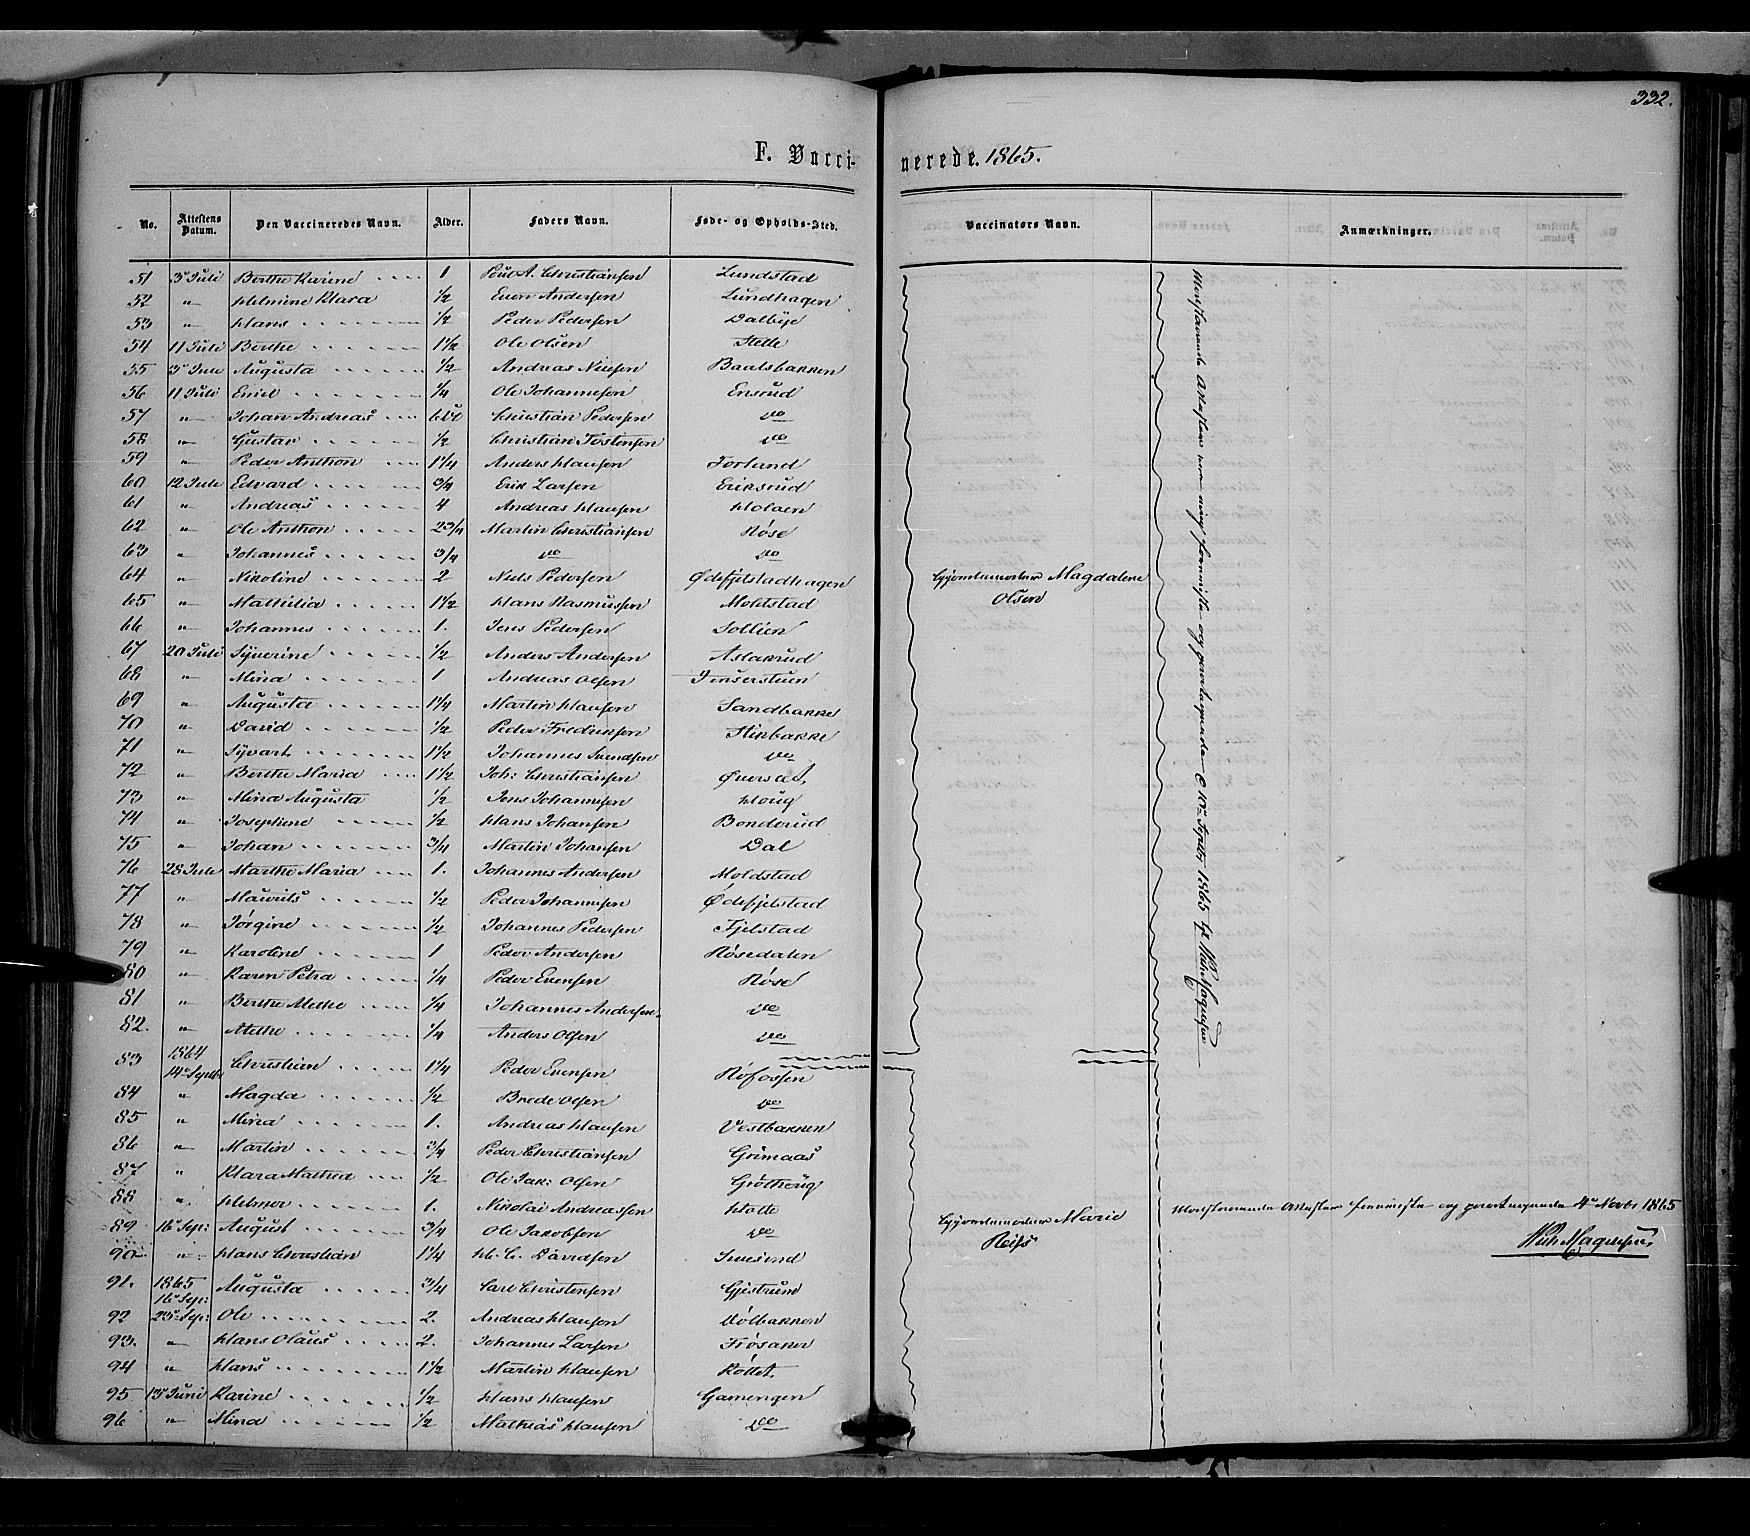 332.
F. Vacci- nerede. 1865.
No. Attestens Datum. Den Vaccineredes Navn. Alder. Faders Navn. Føde- og Opholds-Sted. Vaccinatørs Navn. Anmærkninger.
51 3 Juli Berthe Karine 1 Poul A. Christiansen Lundstad
52 " Helmine Klara 1/2 Even Andersen Lundhagen
53 " Hans 1/2 Peder Pedersen Dalbye
54 11 Juli Berthe 1 1/2 Ole Olsen Stette
55 3 Juli Augusta 1/2 Andreas Nielsen Baalsbakken
56 11 Juli Emil 1/4 Ole Johannesen Ensrud
57 " Johan Andreas Christian Pedersen do
58 " Gustav 1/2 Christian Tostensen do
59 " Peder Anthon 1 1/4 Anders Hansen Forlund
60 12 Juli Edvard 3/4 Erik Larsen Eriksrud
61 " Andreas 4 Andreas Hansen Holaen
62 " Ole Anthon 2 3/4 Martin Christiansen Røse
63 " Johannes 3/4 do do
64 " Nikoline 2 Niels Pedersen Ødefjelstadhagen Gjordemoder Magdalene
65 " Mathilia 1 1/2 Hans Rasmussen Moldstad Olsen
66 " Johannes 1. Jens Pedersen Sollien
67 20 Juli Syverine 1/2 Anders Andersen Aslakrud
68 " Mina 1 Andreas Olsen
69 " Augusta 1 1/4 Martin Hansen Sandbakke
70 " David 1/2 Peder Fredriksen Stikbakke
71 " Syvart 1 1/2 Johannes Svendsen do
72 " Berthe Maria 1 1/2 Joh: Christiansen Øverset.
73 " Mina Augusta 1/2 Jens Johannesen Houg
74 " Josephine 1/2 Hans Johansen Bonderud
75 " Johan 3/4 Martin Johansen Dal
76 28 Juli Marthe Maria 1. Johannes Andersen Moldstad
77 " Maurits 1/2 Peder Johannesen Ødefjelstad
78 " Jørgine 1/2 Johannes Pedersen Fjelstad
79 " Karoline 1 Peder Andersen Røsedalen
80 " Karen Petra 1/4 Peder Evensen Røse
81 " Berthe Methe 1/4 Johannes Andersen do
82. " Methe 1/4 Anders Olsen do
83 1864 14 Septbr Christian 1 1/4 Peder Evensen Røfossen
84 " Magda 1/2 Brede Olsen do
85 " Mina 1. Andreas Hansen Vestbakken
86 " Martin 3/4 Peder Christiansen Grimaas
87 " Klara Mathea 1/2 Ole Jak: Olsen Grøthoug
88 " Helmer 1. Nikolai Andreassen Holte
89 16 Sep: August 3/4 Ole Jakobsen do Gjordemoder Marie
90 " Hans Christian 1 1/4 H. C. Davidsen Reiss
91. 1865 16 Sep: Augusta 3/4 Carl Christensen Gjestrum
92 23 Sep: Ole 2. Andreas Hansen Vølbakken
93. " Hans Olaus 2. Johannes Larsen Frøsaker
94 " Hans 1 1/2 Martin Hansen Røttet.
95 13 Juni Karine 1/2 Hans Hansen Gamengen
96 " Mina 1/2 Mathias Hansen do
Modstaaende Attester ere mig foreviste og paategnede d 10 Septbr 1865
Modstaaende Attester foreviste og paategnede 4 Novbr 1865